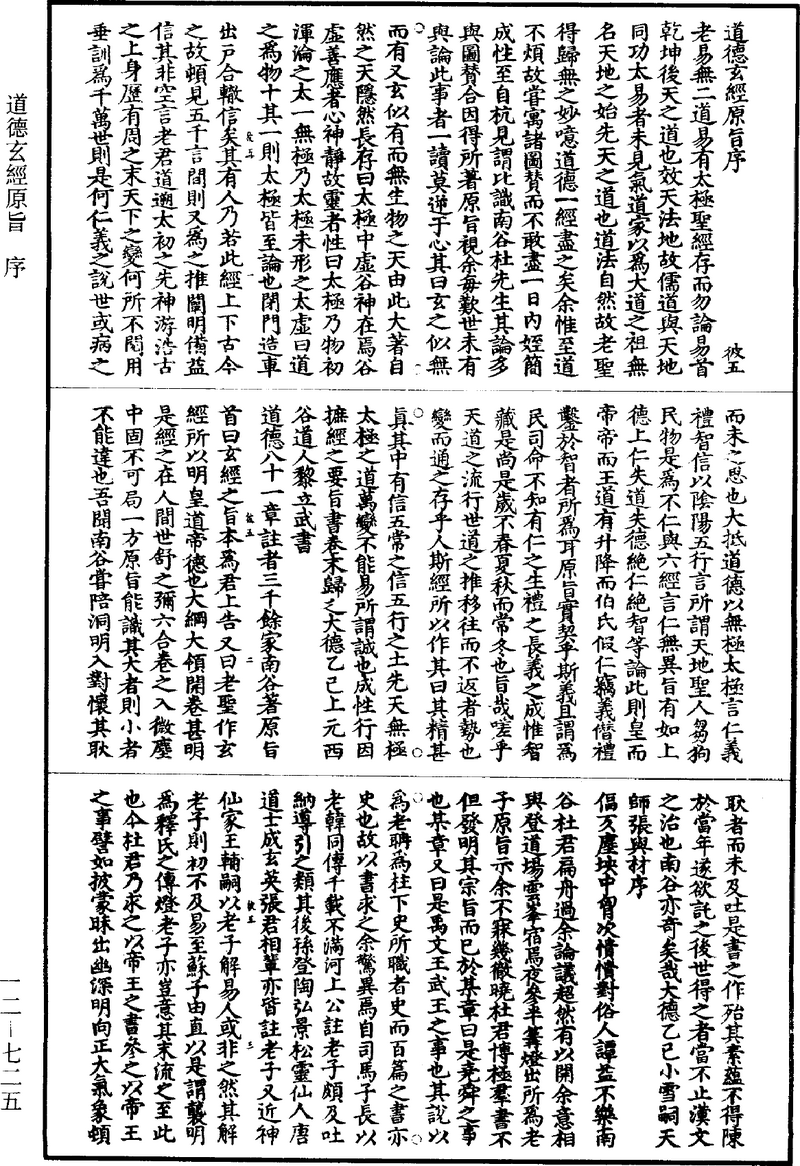 道德玄經原旨序　彼五
老易無二道易有太極聖經存而勿論易首
乾坤後天之道也效天法地故儒道與天地
同功太易者未見氣道家以爲大道之祖無
名天地之始先天之道也道法自然故老聖
得歸無之妙噫道德一經盡之矣余惟至道
不煩故嘗寓諸圖贊而不敢盡一日內姪簡
成性至自杭見謂比識南谷杜先生其論多
與圖贊合因得所著原旨視余每歎世未有
與論此事者一讀莫逆于心其曰玄之似無
而有又玄似有而無生物之天由此大著自
然之天隱然長存曰太極中虛谷神在焉谷
虛善應者心神靜故靈者性曰太極乃物初
渾淪之太一無極乃太極未形之太虛曰道
之爲物十其一則太極皆至論也閉門造車
出戶合轍信矣其有人乃若此經上下古今
之故頓見五千言間則又爲之推闡明備益
信其非空言老君道遡太初之先神游浩古
之上身歷有周之末天下之變何所不閱用
垂訓爲千萬世則是何仁義之說世或病之
而未之思也大抵道德以無極太極言仁義
禮智信以陰陽五行言所謂天地聖人芻狗
民物是爲不仁與六經言仁無異旨有如上
德上仁失道失德絶仁絶智等論此則皇而
帝帝而王道有升降而伯氏假仁竊義僭禮
鑿於智者所爲耳原旨實契乎斯義且謂爲
民司命不知有仁之生禮之長義之成惟智
藏是尚是歲不春夏秋而常冬也旨哉嗟乎
天道之流行世道之推移往而不返者勢也
變而通之存乎人斯經所以作其曰其精甚
真其中有信五常之信五行之土先天無極
太極之道萬變不能易所謂誠也成性行因
摭經之要旨書卷末歸之大德乙己上元西
谷道人黎立武書
道德八十一章註者三千餘家南谷著原旨
首曰玄經之旨本爲君上告又曰老聖作玄
經所以明皇道帝德也大綱大領開卷甚明
是經之在人間世舒之彌六合卷之入微塵
中固不可局一方原旨能識其大者則小者
不能違也吾聞南谷嘗陪洞明入對懷其耿
耿者而未及吐是書之作殆其素蘊不得陳
於當年遂欲託之後世得之者當不止漢文
之治也南谷亦奇矣哉大德乙己小雪嗣天
師張與材序
傴仄塵坱中胷次憒憒對俗人譚益不樂南
谷杜君扁舟過余論議超然有以開余意相
與登道場雲峯宿焉夜參半篝燈出所爲老
子原旨示余不寐幾徹曉杜君博極羣書不
但發明其宗旨而已於某章曰是堯舜之事
也某章又曰是禹文王武王之事也其說以
爲老聃爲柱下史所職者史而百篇之書亦
史也故以書求之余驚異焉自司馬子長以
老韓同傳千載不滿河上公註老子頗及吐
納導引之類其後孫登陶弘景松靈仙人唐
道士成玄英張君相輩亦皆註老子又近神
仙家王輔嗣以老子解易人或非之然其解
老子則初不及易至蘇子由直以是謂襲明
爲釋氏之傳燈老子亦豈意其末流之至此
也今杜君乃求之以帝王之書參之以帝王
之事譬如披蒙昧出幽深明向正大氣象頓
道德玄經原旨　序
一二—七二五